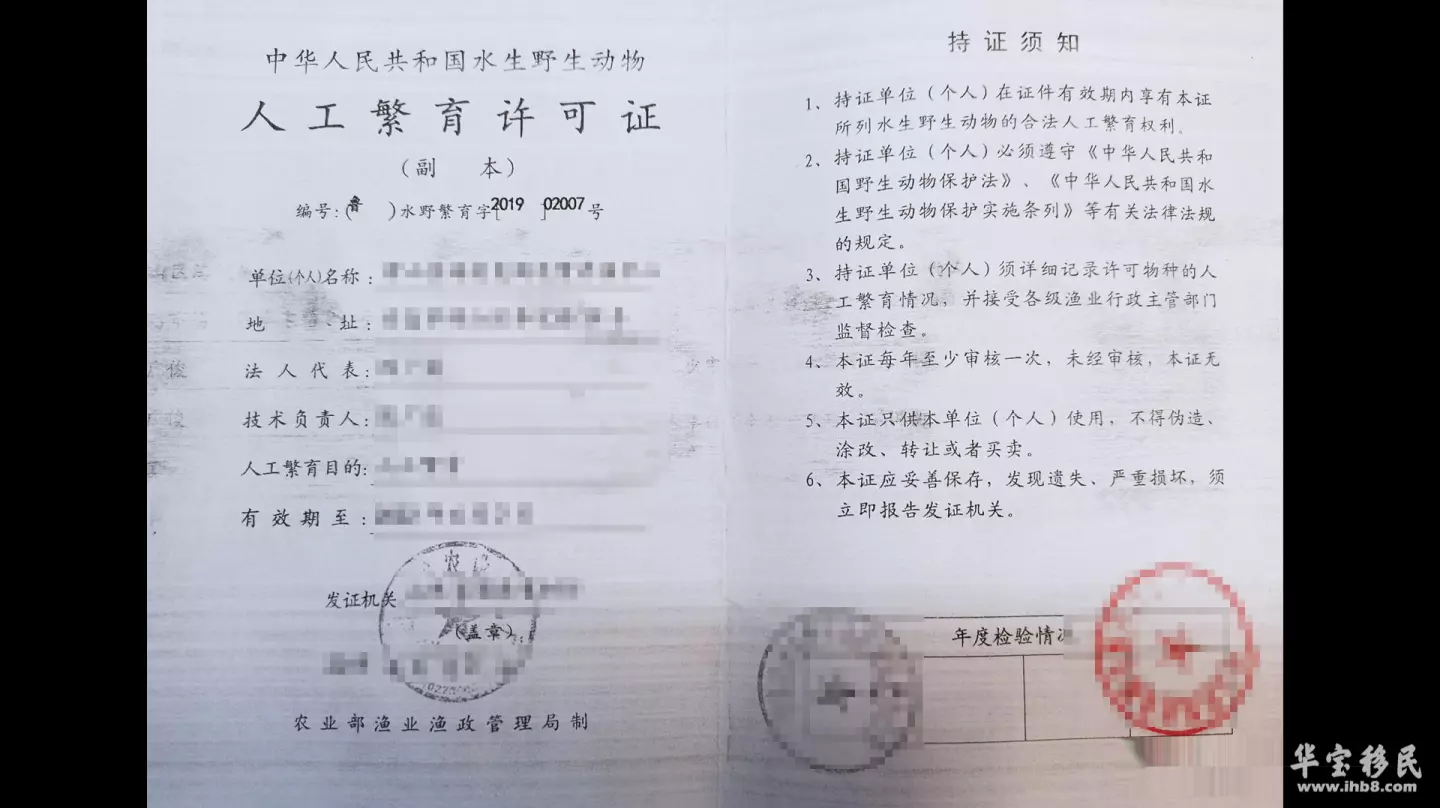 中华人民共和国水生野生动物
人工繁育许可证
（副 本）
编号：（鲁 ）水野繁育字[2019 ]02007号
单位(个人)名称：
地 址：
法人代表：
技术负责人：
人工繁育目的：
有效期至：
发证机关
（盖章）
农业部渔业渔政管理局制
持证须知
1、持证单位（个人）在证件有效期内享有本证
所列水生野生动物的合法人工繁育权利。
2、持证单位（个人）必须遵守《中华人民共和
国野生动物保护法》、《中华人民共和国水
生野生动物保护实施条列》等有关法律法规
的规定。
3、持证单位（个人）须详细记录许可物种的人
工繁育情况，并接受各级渔业行政主管部门
监督检查。
4、本证每年至少审核一次，未经审核，本证无
效。
5、本证只供本单位（个人）使用，不得伪造、
涂改、转让或者买卖。
6、本证应妥善保存，发现遗失、严重损坏，须
立即报告发证机关。
年度检验情
华宝移民
www.ihb8.com